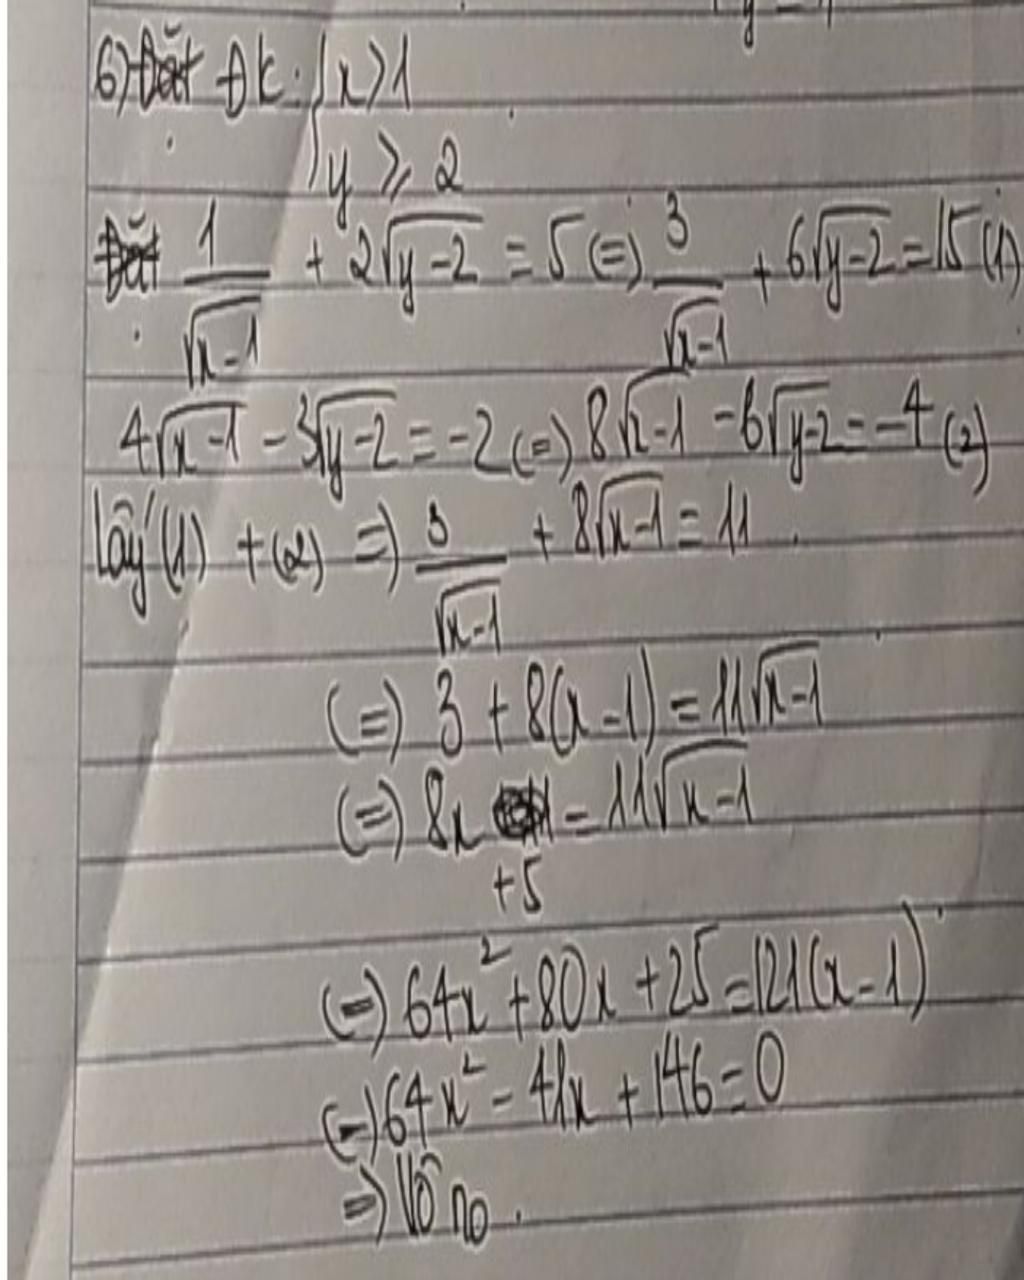 6) Đặt ĐK: { x > 1
y ⩾ 2
Đặt 1/√(x-1) + 2√(y-2) = 5 (=) 3/√(x-1) + 6√(y-2) = 15 (1)
4√(x-1) - 3√(y-2) = -2 (=) 8√(x-1) - 6√(y-2) = -4 (2)
lấy (1) + (2) =) 3/√(x-1) + 8√(x-1) = 11
(=) 3 + 8(x-1) = 11√(x-1)
(=) 8x = 11√(x-1)
+5
(=) 64x² + 80x + 25 = 121(x-1)
(=) 64x² - 41x + 146 = 0
=) Vô no.